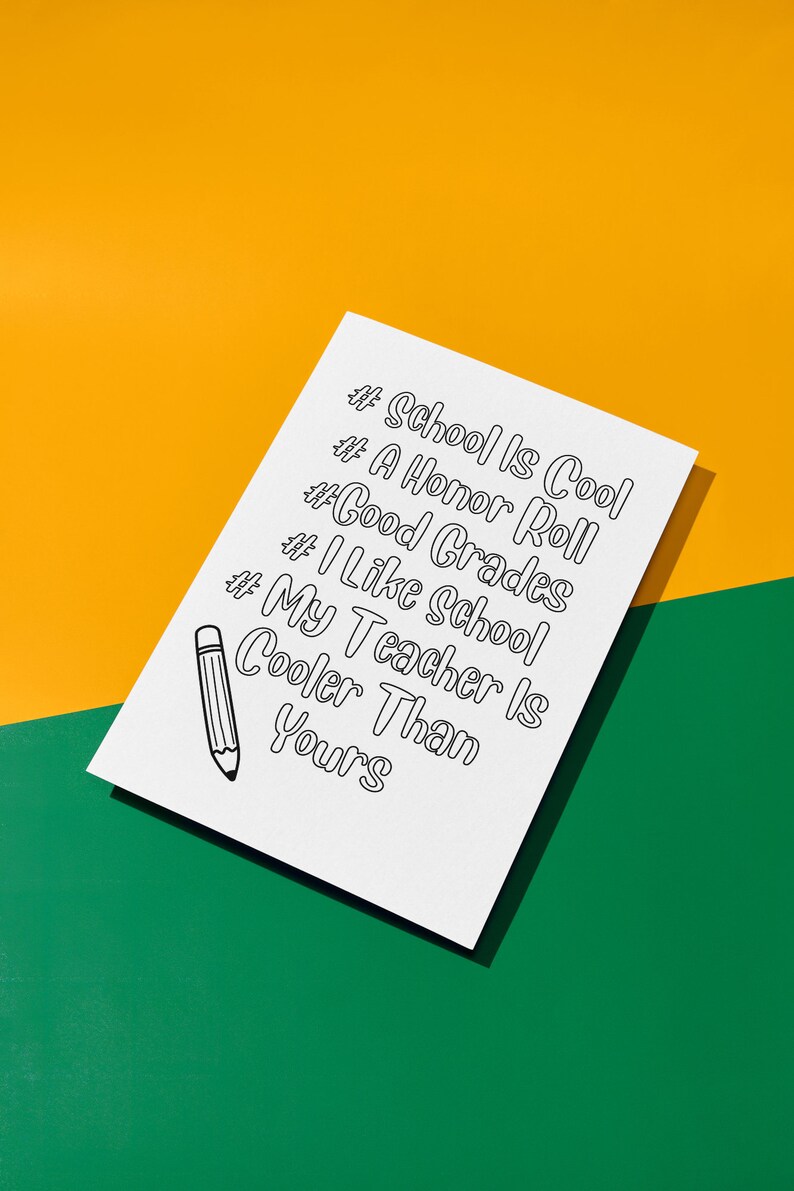 # School Is Cool
# A Honor Roll
#Good Grades
# I Like School
# My Teacher Is
Cooler Than
Yours